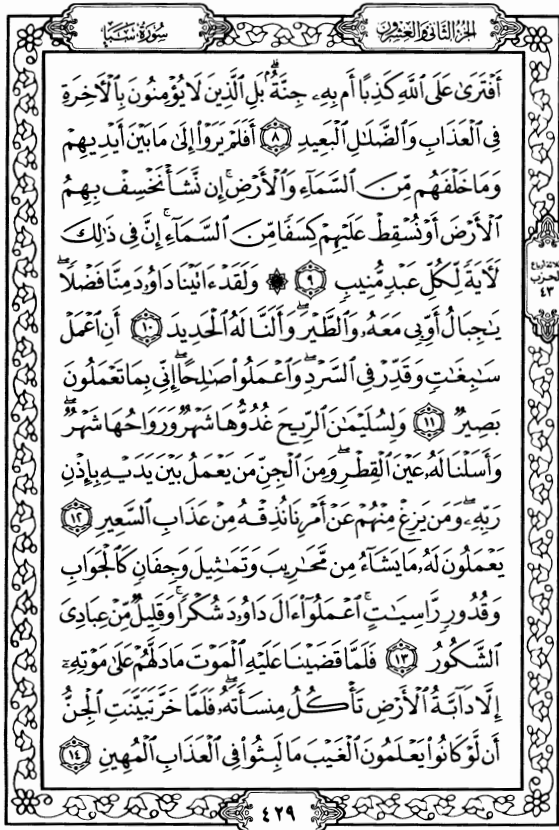 الجزء الثاني والعشرون
سورة سبإ
أَفْتَرَىٰ عَلَى ٱللَّهِ كَذِبًا أَم بِهِۦ جِنَّةٌۢ ۗ بَلِ ٱلَّذِينَ لَا يُؤْمِنُونَ بِٱلْـَٔاخِرَةِ
فِى ٱلْعَذَابِ وَٱلضَّلَـٰلِ ٱلْبَعِيدِ ٨ أَفَلَمْ يَرَوْا۟ إِلَىٰ مَا بَيْنَ أَيْدِيهِمْ
وَمَا خَلْفَهُم مِّنَ ٱلسَّمَآءِ وَٱلْأَرْضِ ۚ إِن نَّشَأْ نَخْسِفْ بِهِمُ
ٱلْأَرْضَ أَوْ نُسْقِطْ عَلَيْهِمْ كِسَفًا مِّنَ ٱلسَّمَآءِ ۚ إِنَّ فِى ذَٰلِكَ
لَـَٔايَةً لِّكُلِّ عَبْدٍ مُّنِيبٍ ٩ ۞ وَلَقَدْ ءَاتَيْنَا دَاوُۥدَ مِنَّا فَضْلًا ۖ
يَـٰجِبَالُ أَوِّبِى مَعَهُۥ وَٱلطَّيْرَ ۖ وَأَلَنَّا لَهُ ٱلْحَدِيدَ ١٠ أَنِ ٱعْمَلْ
سَـٰبِغَـٰتٍ وَقَدِّرْ فِى ٱلسَّرْدِ ۖ وَٱعْمَلُوا۟ صَـٰلِحًا ۖ إِنِّى بِمَا تَعْمَلُونَ
بَصِيرٌ ١١ وَلِسُلَيْمَـٰنَ ٱلرِّيحَ غُدُوُّهَا شَهْرٌ وَرَوَاحُهَا شَهْرٌ ۖ
وَأَسَلْنَا لَهُۥ عَيْنَ ٱلْقِطْرِ ۖ وَمِنَ ٱلْجِنِّ مَن يَعْمَلُ بَيْنَ يَدَيْهِ بِإِذْنِ
رَبِّهِۦ ۖ وَمَن يَزِغْ مِنْهُمْ عَنْ أَمْرِنَا نُذِقْهُ مِنْ عَذَابِ ٱلسَّعِيرِ ١٢
يَعْمَلُونَ لَهُۥ مَا يَشَآءُ مِن مَّحَـٰرِيبَ وَتَمَـٰثِيلَ وَجِفَانٍ كَٱلْجَوَابِ
وَقُدُورٍ رَّاسِيَـٰتٍ ۚ ٱعْمَلُوٓا۟ ءَالَ دَاوُۥدَ شُكْرًا ۚ وَقَلِيلٌ مِّنْ عِبَادِىَ
ٱلشَّكُورُ ١٣ فَلَمَّا قَضَيْنَا عَلَيْهِ ٱلْمَوْتَ مَا دَلَّهُمْ عَلَىٰ مَوْتِهِۦٓ
إِلَّا دَآبَّةُ ٱلْأَرْضِ تَأْكُلُ مِنسَأَتَهُۥ ۖ فَلَمَّا خَرَّ تَبَيَّنَتِ ٱلْجِنُّ
أَن لَّوْ كَانُوا۟ يَعْلَمُونَ ٱلْغَيْبَ مَا لَبِثُوا۟ فِى ٱلْعَذَابِ ٱلْمُهِينِ ١٤
الحزب
٤٣
٤٢٩